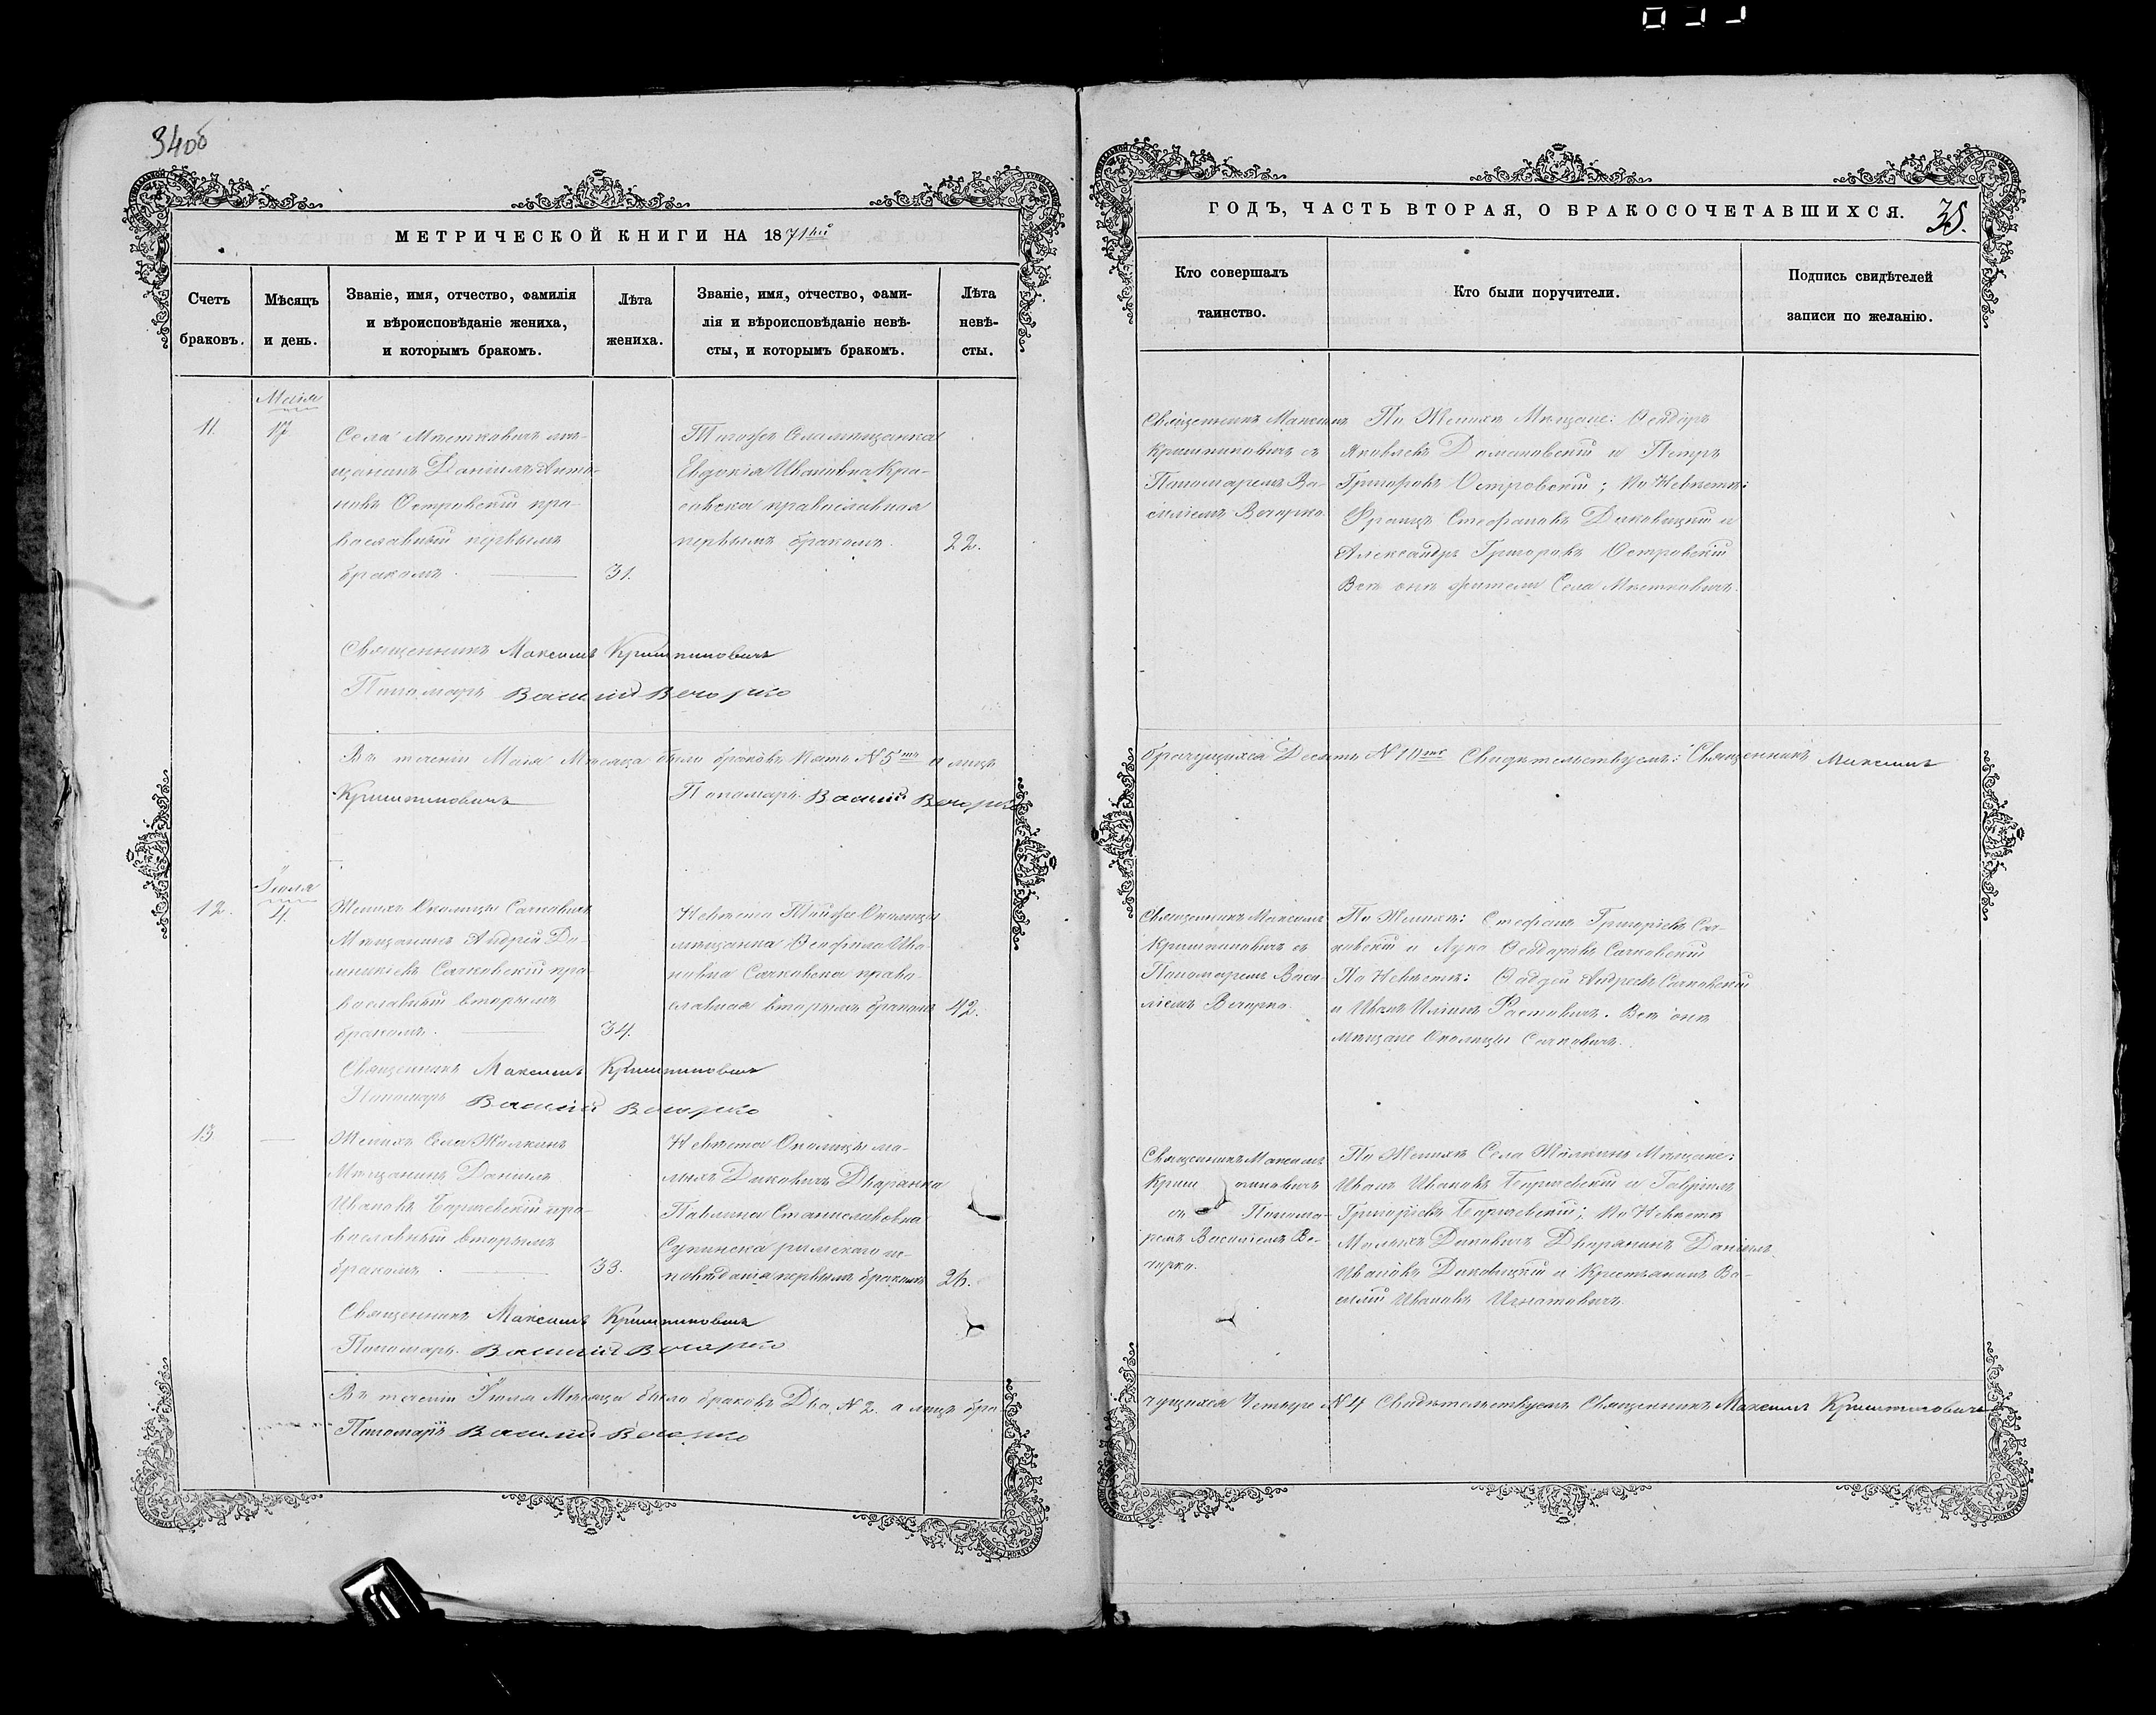 34об
МЕТРИЧЕСКОЙ КНИГИ НА 1871ый
Счетъ браковъ.
Мѣсяцъ и день.
Званіе, имя, отчество, фамилія
и вѣроисповѣданіе жениха,
и которымъ бракомъ.
Лѣта
жениха.
Званіе, имя, отчество, фами-
лія и вѣроисповѣданіе невѣ-
сты, и которымъ бракомъ.
Лѣта
невѣ-
сты.
Маія
11.
17
Села Мѣтковичъ мѣ-
щанинъ Даніилъ Анто-
новъ Островскій пра-
вославный первымъ
бракомъ.
31.
Тогоже Села мѣщанка
Евдокія Иванівна Кра-
православная
первымъ бракомъ.
22.
Священникъ Максимъ
Пономарь Василій Вечорко
Въ теченіи Маія Мѣсяца было браковъ Пять №5ть а лицъ
Пономарь Василій Вечорко
Іюля
12.
4.
Женихъ Околицы Сачковичъ
Мѣщанинъ Андрей До-
миніевъ Сачковскій пра-
вославный вторымъ
бракомъ.
34.
Невѣста Тойже Околицы
мѣщанка Ива-
новна Сачковска право-
славная вторымъ бракомъ
42.
Священникъ Максимъ
Пономарь Василій Вечорко
13
Женихъ Села
Мѣщанинъ Даніилъ
Ивановъ пра-
вославный вторымъ
бракомъ.
33.
Невѣста Околицы ма-
лыхъ Диковичъ Дворянка
Павлина Станиславовна
римскаго ис-
повѣданія первымъ бракомъ
26.
Священникъ Максимъ
Пономарь Василій Вечорко
Въ теченіи Іюля Мѣсяца было браковъ Два №2. а лицъ бра-
Пономарь Василій Вечорко
ГОДЪ, ЧАСТЬ ВТОРАЯ, О БРАКОСОЧЕТАВШИХСЯ.
35.
Кто совершалъ
таинство.
Кто были поручители.
Подпись свидѣтелей
записи по желанію.
Священникъ Максимъ
съ
Пономаремъ Ва-
силіемъ Вечорко.
По Женихѣ Мѣщане: Ѳеодоръ
Яковлевъ Домановскій и Петръ
Григоровъ Островскій; По Невѣстѣ:
Францъ Стефановъ Диковицкій и
Александръ Григоровъ Островскій
Всѣ онѣ жители Села Мѣтковичъ.
брачущихся Десять №10ть Свидѣтельствуемъ: Священникъ Максимъ
Священникъ Максимъ
съ
Пономаремъ Васи-
ліемъ Вечорко.
По Женихѣ: Стефанъ Григоріевъ Сач-
ковскій и Лука Ѳеодоровъ Сачковскій
По Невѣстѣ: Ѳаддей Андреевъ Сачковскій
и Иванъ Ильинъ Растовичъ. Всѣ онѣ
мѣщане Околицы Сачковичъ.
Священникъ Максимъ
съ Понома-
ремъ Василіемъ Ве-
чорко.
По Женихѣ Села Мѣщане:
Иванъ Ивановъ и Гавріилъ
Григоріевъ; По Невѣстѣ
Малыхъ Диковичъ Дворянинъ Даніилъ
Ивановъ Диковицкій и Крестьянинъ Ва-
силій Ивановъ Игнатовичъ.
чущихся Четыре №4 Свидѣтельствуемъ Священникъ Максимъ